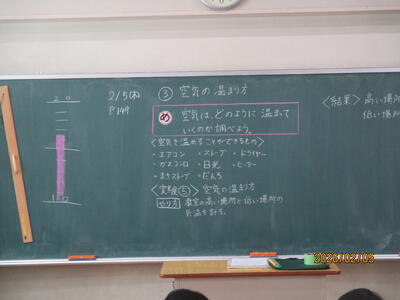 20
10
2/5(木)
P149
③ 空気の温まり方
め 空気は、どのように 温まって
いくのか 調べよう。
〈空気を温めることができるもの〉
・エアコン ・ストーブ ・ドライヤー
・ガスコンロ ・日光 ・ヒーター
・まきストーブ ・だんろ
〈実験⑤〉空気の温まり方
やり方 教室の高い場所と低い場所の
気温を計る。
〈結果〉高い場所
低い場所
2026/02/05